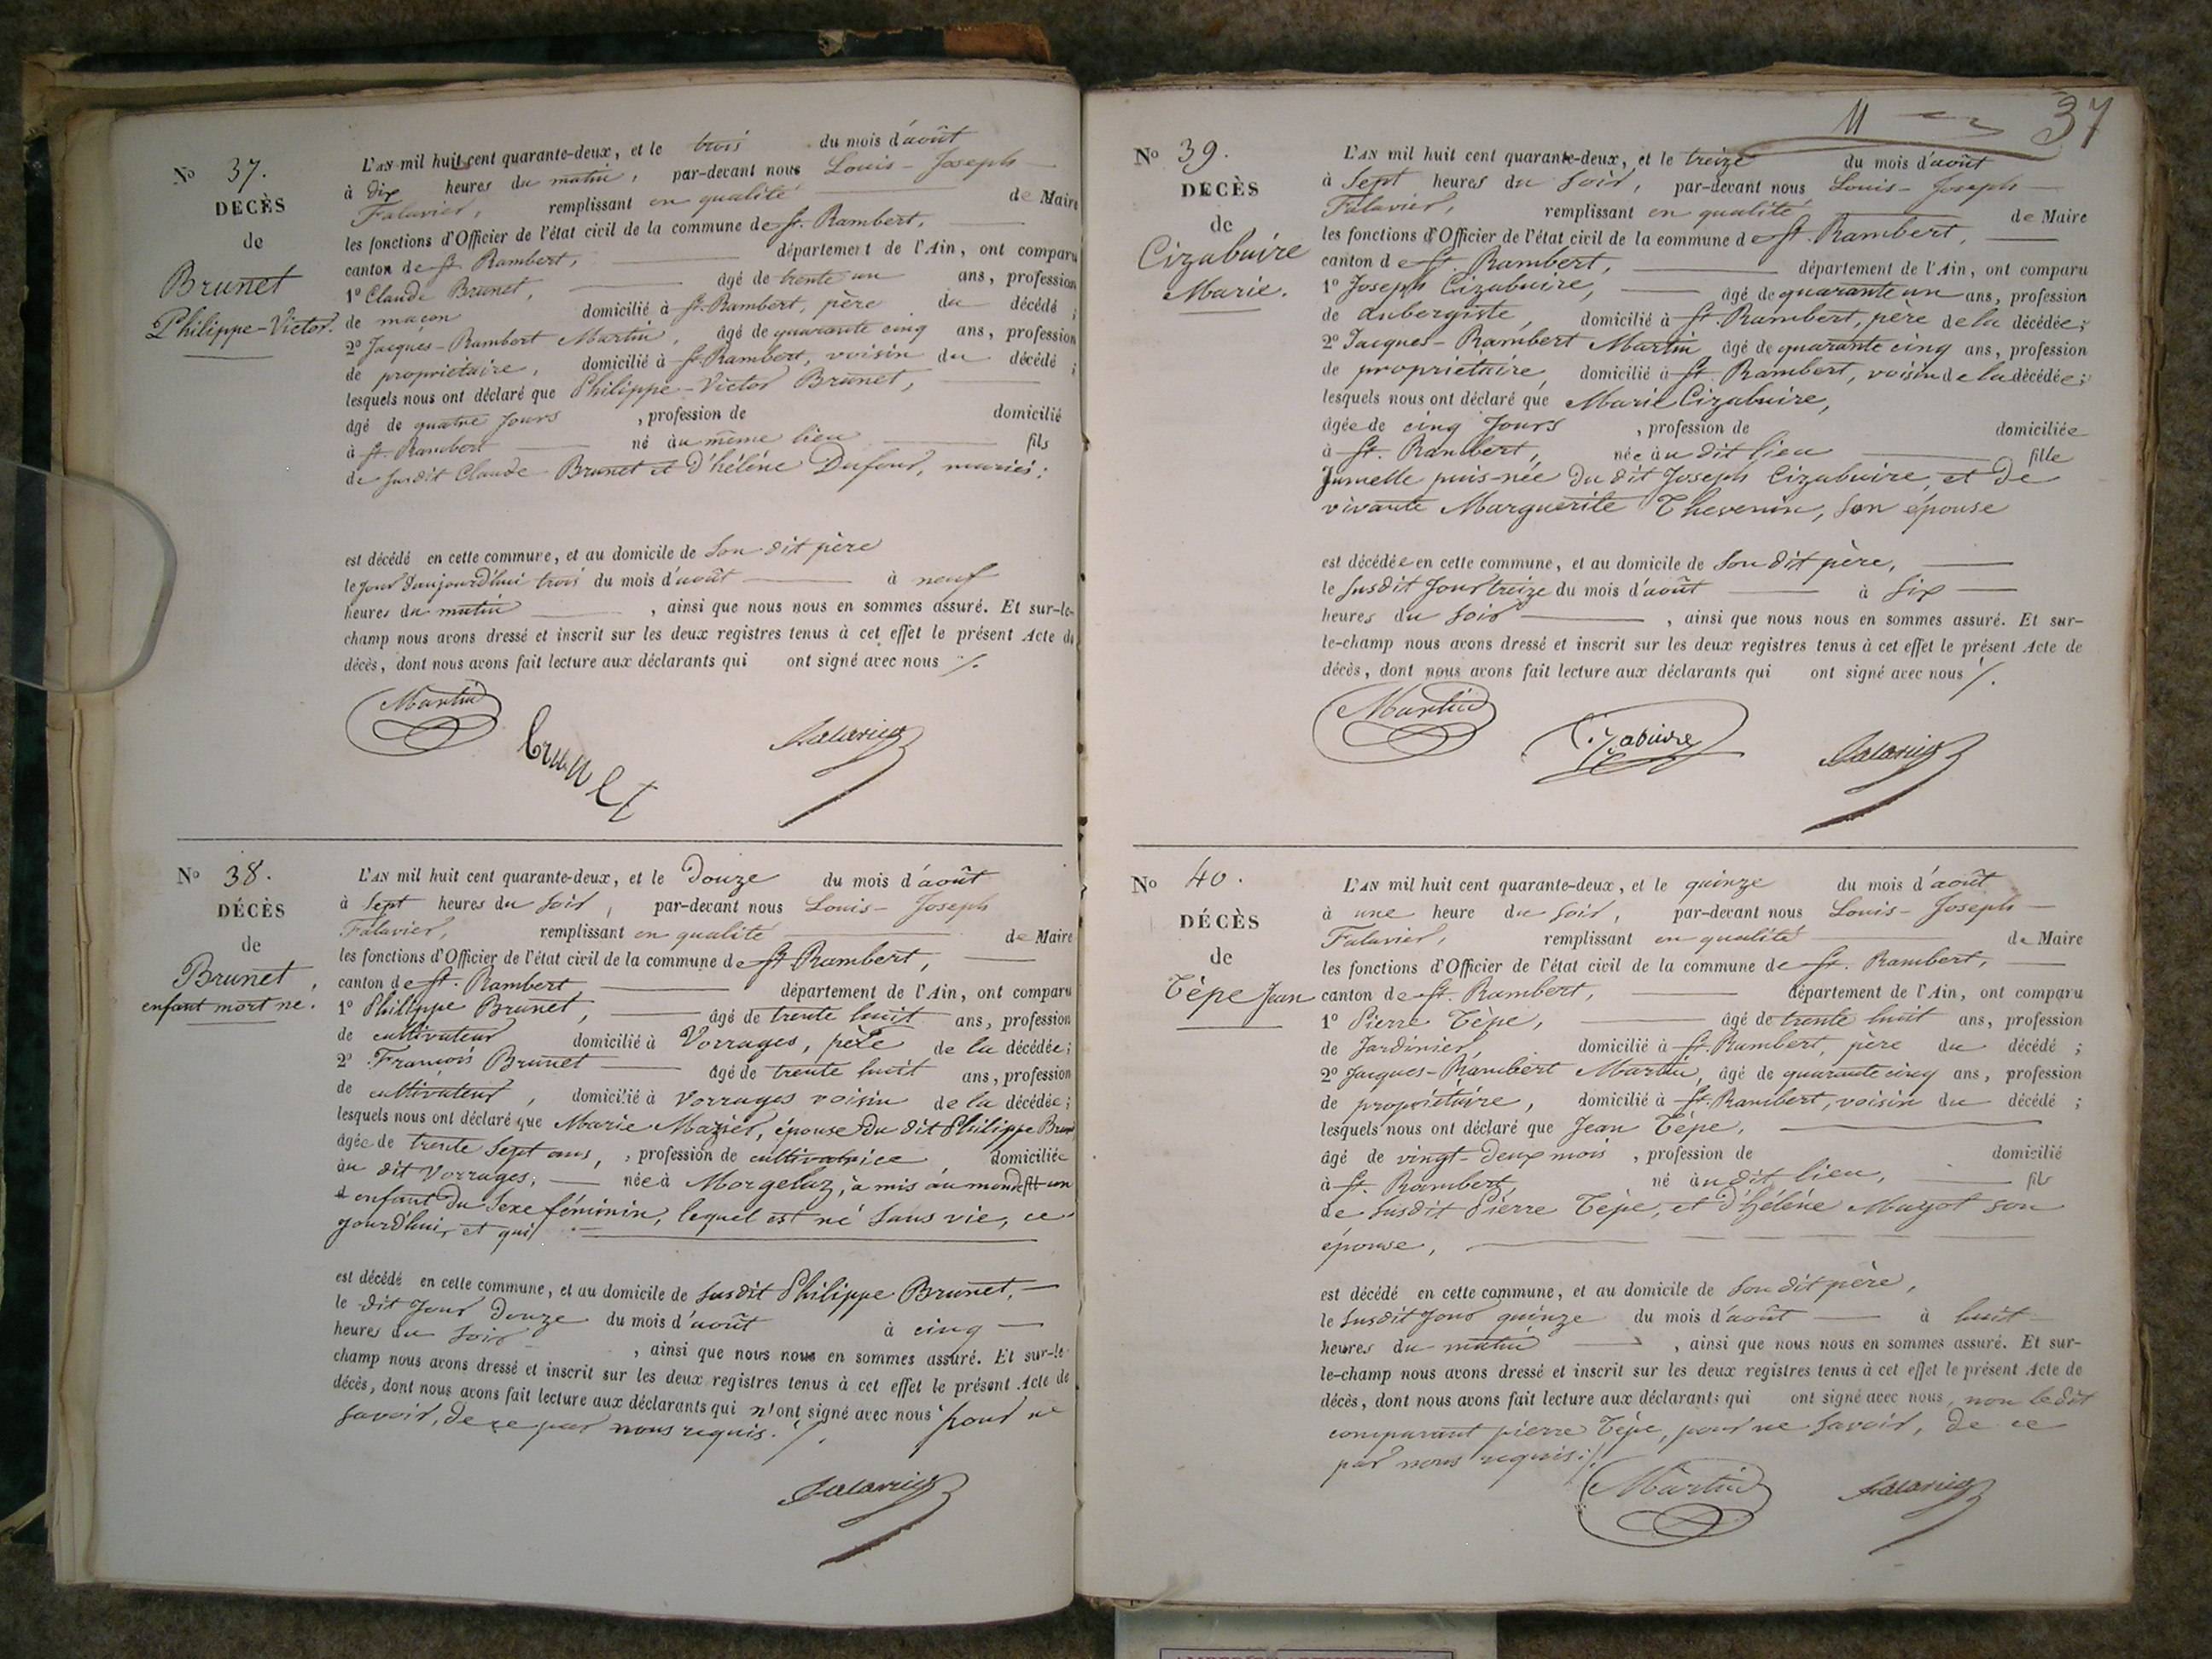 N° 37.
DÉCÈS
de
Brunet
Philippe-Victor.
L'AN mil huit cent quarante-deux, et le trois du mois d'août
à dix heures du matin, par-devant nous Louis-Joseph
Falavier, remplissant en qualité de Maire
les fonctions d'Officier de l'état civil de la commune de St. Rambert,
canton de St. Rambert, département de l'Ain, ont comparu
1° Claude Brunet, âgé de trente un ans, profession
de maçon domicilié à St. Rambert, père du décédé ;
2° Jacques-Rambert Martin, âgé de quarante cinq ans, profession
de propriétaire, domicilié à St. Rambert, voisin du décédé ;
lesquels nous ont déclaré que Philippe-Victor Brunet,
âgé de quatre jours , profession de domicilié
à St. Rambert né au même lieu fils
de susdit Claude Brunet et d'hélène Dufour, mariés ;
est décédé en cette commune, et au domicile de Son dit père
le jour d'aujourd'hui trois du mois d'août à neuf
heures du matin , ainsi que nous nous en sommes assuré. Et sur-le-
champ nous avons dressé et inscrit sur les deux registres tenus à cet effet le présent Acte de
décès, dont nous avons fait lecture aux déclarants qui ont signé avec nous /.
Martin
brunet
Falavier
N° 38.
DÉCÈS
de
Brunet,
enfant mort né.
L'AN mil huit cent quarante-deux, et le Douze du mois d'août
à Sept heures du soir, par-devant nous Louis-Joseph
Falavier, remplissant en qualité de Maire
les fonctions d'Officier de l'état civil de la commune de St Rambert,
canton de St. Rambert département de l'Ain, ont comparu
1° Philippe Brunet, âgé de trente huit ans, profession
de cultivateur domicilié à Vorrages, père de la décédée ;
2° François Brunet âgé de trente huit ans, profession
de cultivateur, domicilié à Vorrages voisin de la décédée ;
lesquels nous ont déclaré que Marie Mazier, épouse du dit Philippe Brunet
âgée de trente Sept ans, , profession de cultivatrice domiciliée
au dit Vorrages, née à Morgeluz, a mis au monde un
enfant du Sexe féminin, lequel est né Sans vie, ce
jourd'hui, et qui
est décédé en cette commune, et au domicile de susdit Philippe Brunet,
le dit Jour Douze du mois d'août à cinq
heures du Soir , ainsi que nous nous en sommes assuré. Et sur-le-
champ nous avons dressé et inscrit sur les deux registres tenus à cet effet le présent Acte de
décès, dont nous avons fait lecture aux déclarants qui n'ont signé avec nous pour ne
savoir, de ce par nous requis. /.
Falavier
11
37
N° 39.
DÉCÈS
de
Cizabuire
Marie.
L'AN mil huit cent quarante-deux, et le treize du mois d'août
à Sept heures du Soir, par-devant nous Louis-Joseph
Falavier, remplissant en qualité de Maire
les fonctions d'Officier de l'état civil de la commune de St. Rambert,
canton de St. Rambert, département de l'Ain, ont comparu
1° Joseph Cizabuire, âgé de quarante un ans, profession
de Aubergiste, domicilié à St. Rambert, père de la décédée ;
2° Jacques-Rambert Martin âgé de quarante cinq ans, profession
de propriétaire, domicilié à St. Rambert, voisin de la décédée ;
lesquels nous ont déclaré que Marie Cizabuire,
âgée de cinq Jours , profession de domiciliée
à St. Rambert, née au dit lieu fille
Jumelle puis-née du dit Joseph Cizabuire, et de
vivante Marguerite Thevenin, Son épouse
est décédée en cette commune, et au domicile de Son dit père,
le Susdit Jour treize du mois d'août à Six
heures du Soir , ainsi que nous nous en sommes assuré. Et sur-
le-champ nous avons dressé et inscrit sur les deux registres tenus à cet effet le présent Acte de
décès, dont nous avons fait lecture aux déclarants qui ont signé avec nous /.
Martin
Cizabuire
Falavier
N° 40.
DÉCÈS
de
Tèpe Jean
L'AN mil huit cent quarante-deux, et le quinze du mois d'août
à une heure du Soir, par-devant nous Louis-Joseph
Falavier, remplissant en qualité de Maire
les fonctions d'Officier de l'état civil de la commune de St. Rambert,
canton de St. Rambert, département de l'Ain, ont comparu
1° Pierre Tèpe, âgé de trente huit ans, profession
de Jardinier, domicilié à St. Rambert, père du décédé ;
2° Jacques-Rambert Martin, âgé de quarante cinq ans, profession
de propriétaire, domicilié à St. Rambert, voisin du décédé ;
lesquels nous ont déclaré que Jean Tèpe,
âgé de vingt-deux mois , profession de domicilié
à St. Rambert, né au dit lieu, fils
de susdit Pierre Tèpe, et d'hélène Mugot son
épouse,
est décédé en cette commune, et au domicile de Son dit père,
le Susdit Jour quinze du mois d'août à huit
heures du matin , ainsi que nous nous en sommes assuré. Et sur-
le-champ nous avons dressé et inscrit sur les deux registres tenus à cet effet le présent Acte de
décès, dont nous avons fait lecture aux déclarants qui ont signé avec nous, non le dit
comparant pierre Tèpe, pour ne Savoir, de ce
par nous requis ./.
Martin
Falavier